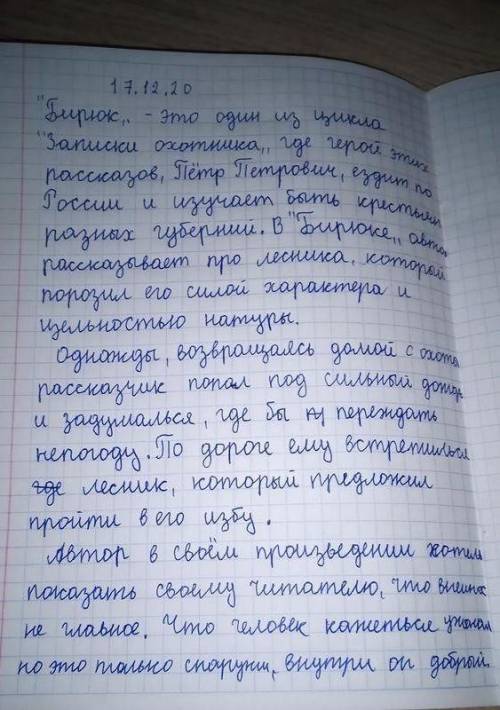 17.12.20
"Бирюк„ - это один из цикла
"Записки охотника„, где герой этих
рассказов, Пётр Петрович, ездит по
России и изучает быть крестьян
разных губерний. В "Бирюке„ автор
рассказывает про лесника, который
порозил его силой характера и
цельностью натуры.
Однажды, возвращаясь домой с охоты
рассказчик попал под сильный дождь
и задумалься, где бы переждать
непогоду. По дороге ему встретилься
лесник, который предложил
пройти в его избу.
Автор в своём произведении хотел
показать своему читателю, что внешнос
не главное. Что человек кажеться
но это только снаружи, внутри он добрый.